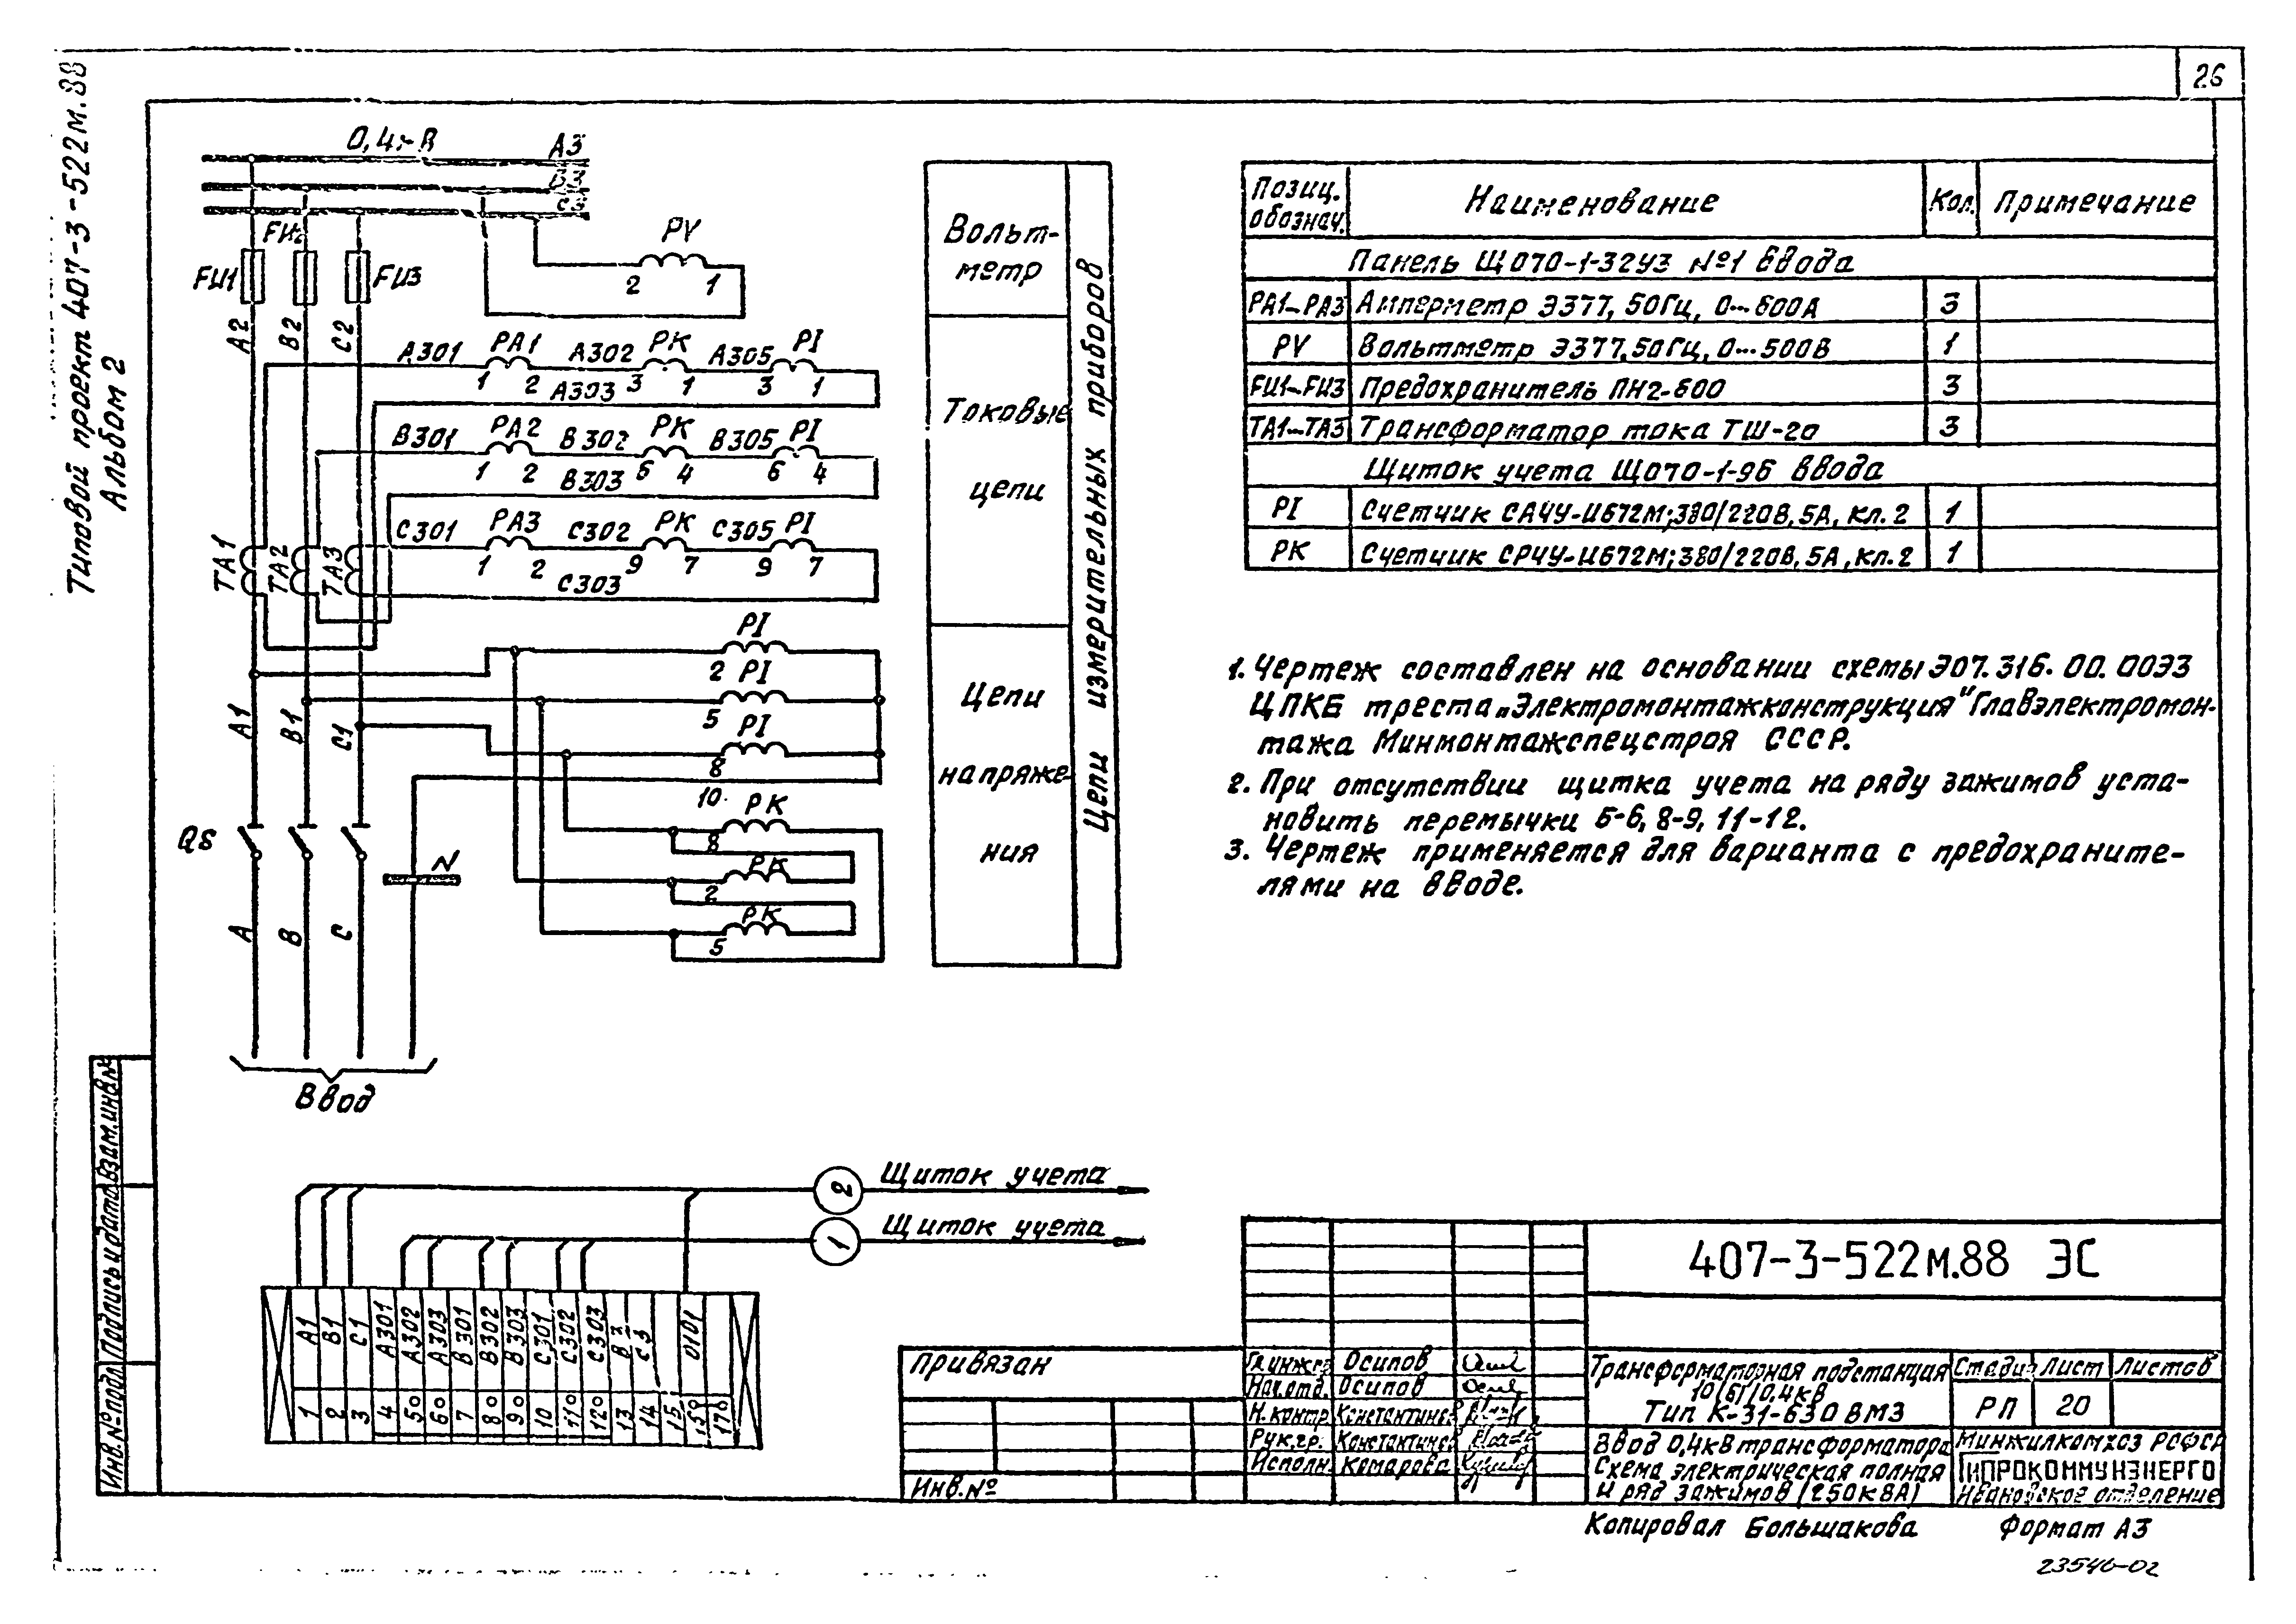 26
Типовой проект 407-3-522м.88
Альбом 2
0,4кВ
А3
В3
С3
FU2
FU1
FU3
А2
В2
С2
PV
2 1
А301 PA1 А302 PK А305 PI
1 2 3 1 3 1
А303
В301 PA2 В302 PK В305 PI
1 2 6 4 6 4
В303
С301 PA3 С302 PK С305 PI
1 2 9 7 9 7
С303
TA1
TA2
TA3
PI
2 PI
5 PI
8
10
PK
8
PK
2
PK
5
А1
В1
С1
QS
N
А
В
С
Ввод
Вольт-
метр
Токовые
цепи
Цепи
напряже-
ния
Цепи измерительных приборов
Позиц. обознач. Наименование Кол. Примечание
Панель ЩО70-1-32У3 №1 ввода
PA1-PA3 Амперметр Э377, 50Гц, 0...600А 3
PV Вольтметр Э377, 50Гц, 0...500В 1
FU1-FU3 Предохранитель ПН2-600 3
TA1-TA3 Трансформатор тока ТШ-20 3
Щиток учета ЩО70-1-96 ввода
PI Счетчик СА4У-И672М; 380/220В, 5А, кл. 2 1
PK Счетчик СР4У-И672М; 380/220В, 5А, кл. 2 1
1. Чертеж составлен на основании схемы Э07.316.00.00Э3
ЦПКБ треста „Электромонтажконструкция" Главэлектромон-
тажа Минмонтажспецстроя СССР.
2. При отсутствии щитка учета на ряду зажимов уста-
новить перемычки 5-6, 8-9, 11-12.
3. Чертеж применяется для варианта с предохраните-
лями на вводе.
2 Щиток учета
1 Щиток учета
А1 В1 С1 А301 А302 А303 В301 В302 В303 С301 С302 С303 В3 С3 0101
1 2 3 4 5 6 7 8 9 10 11 12 13 14 15 17
Инв.№подл. Подпись и дата Взам.инв.№
Привязан
Инв.№
407-3-522м.88 ЭС
Гл.инж. Осипов
Нач.отд. Осипов
Н.контр. Константинов
Рук.гр. Константинов
Исполн. Комарова
Трансформаторная подстанция
10(6)/0,4кВ
Тип К-31-630 ВМ3
Стадия Лист Листов
РП 20
Ввод 0,4кВ трансформатора
Схема электрическая полная
и ряд зажимов (250кВА)
Минжилкомхоз РСФСР
ГИПРОКОММУНЭНЕРГО
Ивановское отделение
Копировал Большакова
Формат А3
23546-02